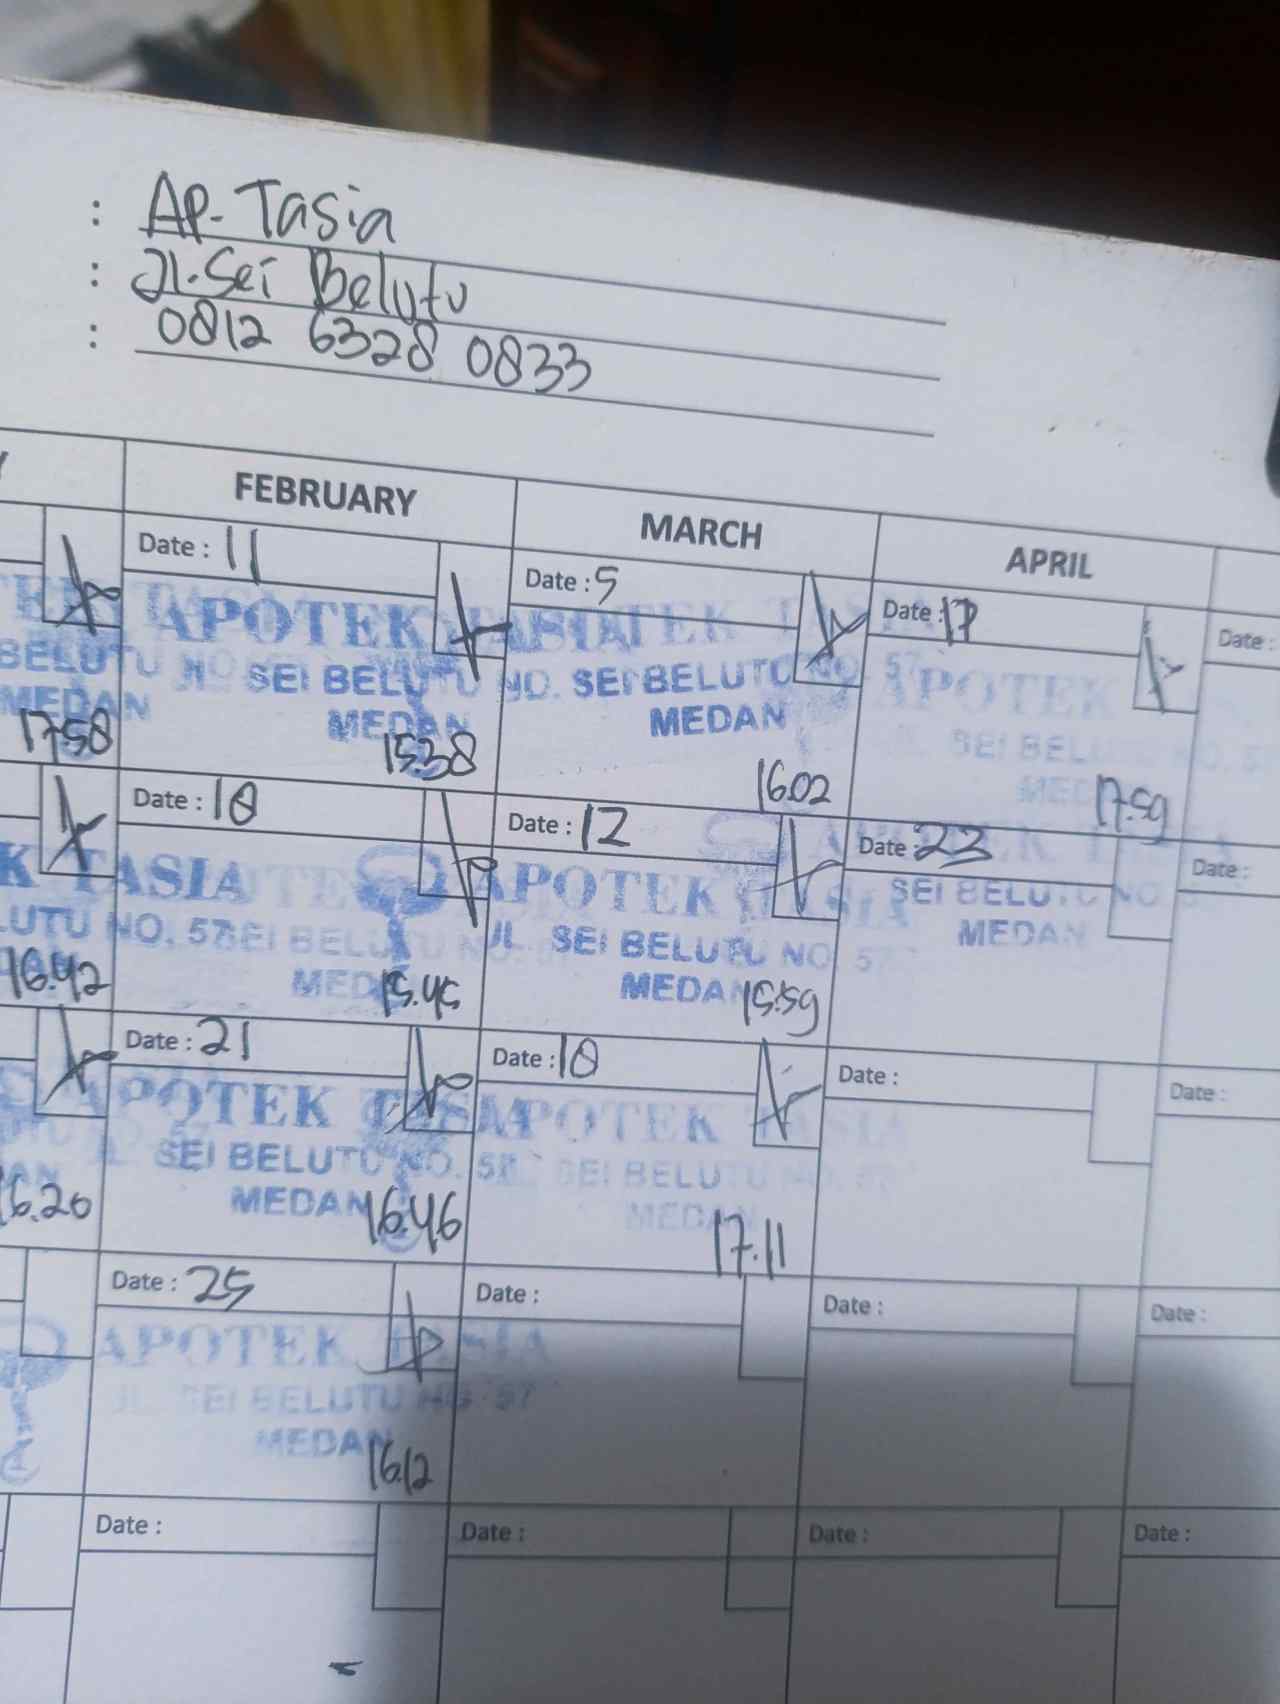 : Ap-Tasia
: Jl. Sei Belutu
: 0812 6328 0833
FEBRUARY MARCH APRIL
Date : 11 Date : 5 Date : 17 Date :
APOTEK TASIA APOTEK TASIA APOTEK
BELUTU JL. SEI BELUTU NO. SEI BELUTU NO. 57 SEI BELUTU NO. 57
MEDAN MEDAN MEDAN MEDAN
17.58 15.38 16.02 17.59
Date : 18 Date : 12 Date : 23 Date :
TASIA APOTEK TASIA APOTEK TASIA
LUTU NO. 57 SEI BELUTU NO. JL. SEI BELUTU NO. 57 SEI BELUTU NO. 5
MEDAN MEDAN MEDAN
16.42 15.45 15.59
Date : 21 Date : 18 Date : Date :
APOTEK TASIA APOTEK TASIA
SEI BELUTU NO. 57 SEI BELUTU NO. 57
MEDAN MEDAN
16.20 16.46 17.11
Date : 25 Date : Date : Date :
APOTEK TASIA
JL. SEI BELUTU NO. 57
MEDAN
16.12
Date : Date : Date : Date :